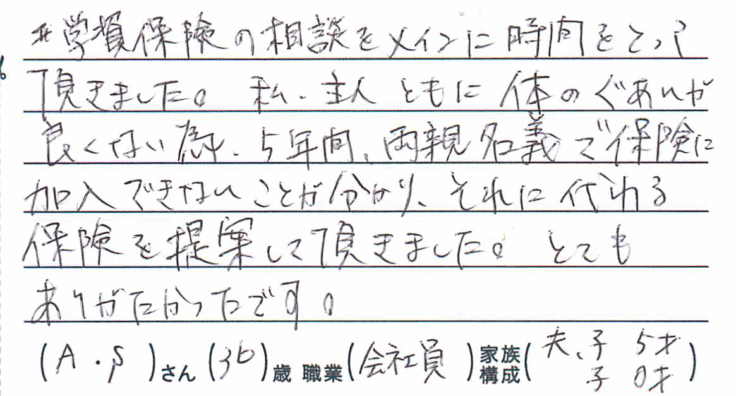 学資保険の相談をメインに時間をとって
頂きました。私、主人ともに体のぐあいが
良くない為、5年間、両親名義で保険に
加入できないことが分かり、それに代わる
保険を提案して頂きました。とても
ありがたかったです。
(A.S)さん(36)歳 職業(会社員)家族構成(夫、子 5才
子 0才)